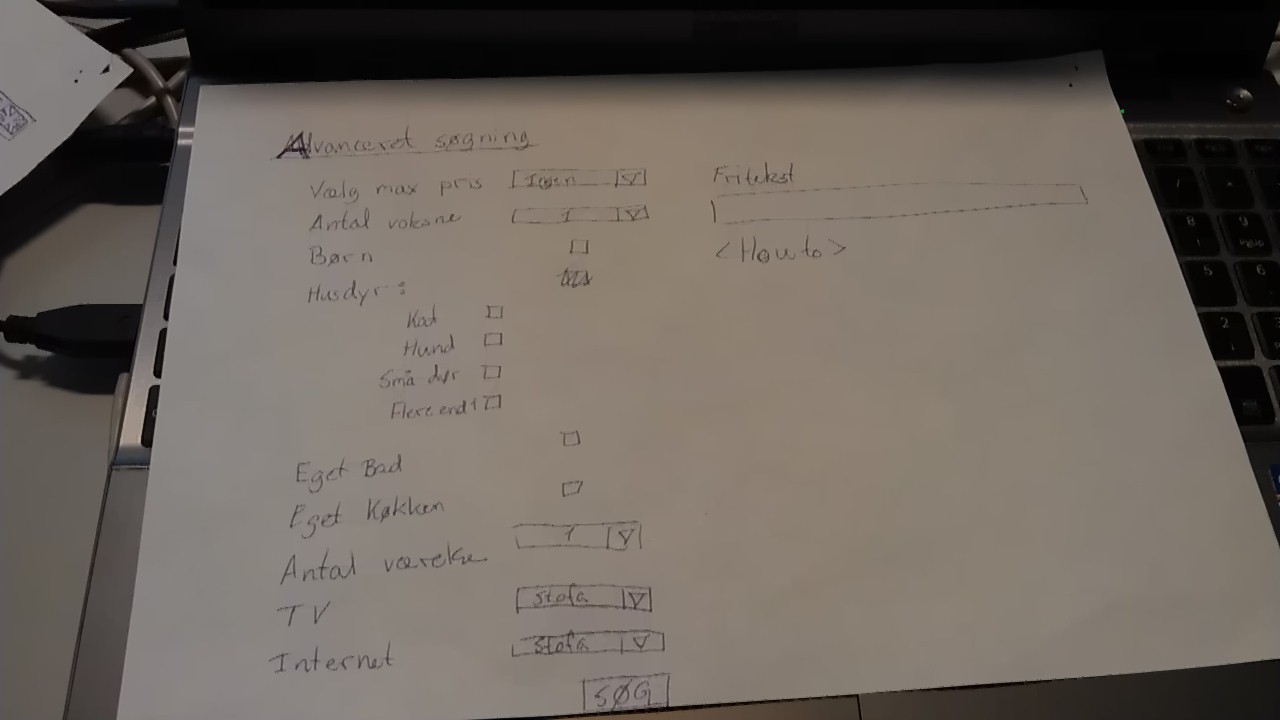 Advanceret søgning
Vælg max pris Ingen
Antal voksne 1
Børn
Husdyr:
Kat
Hund
Små dyr
Flere end 1
Eget Bad
Eget Køkken
Antal værelse 1
TV Stofa
Internet Stofa
SØG
Fritekst
<How to>
8
9
PgUp
5
6
2